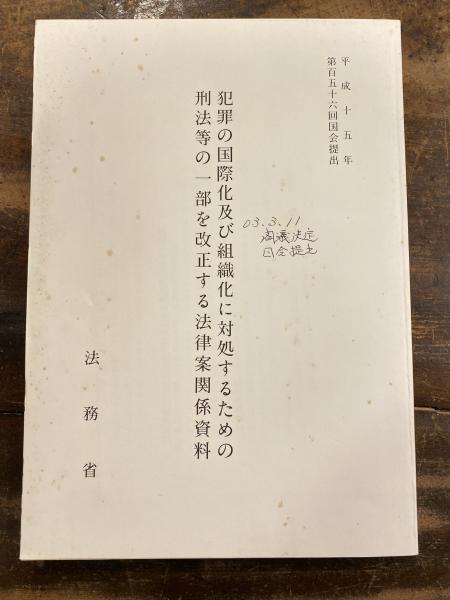 平成十五年
第百五十六回国会提出
犯罪の国際化及び組織化に対処するための
刑法等の一部を改正する法律案関係資料
03.3.11
閣議決定
国会提出
法務省